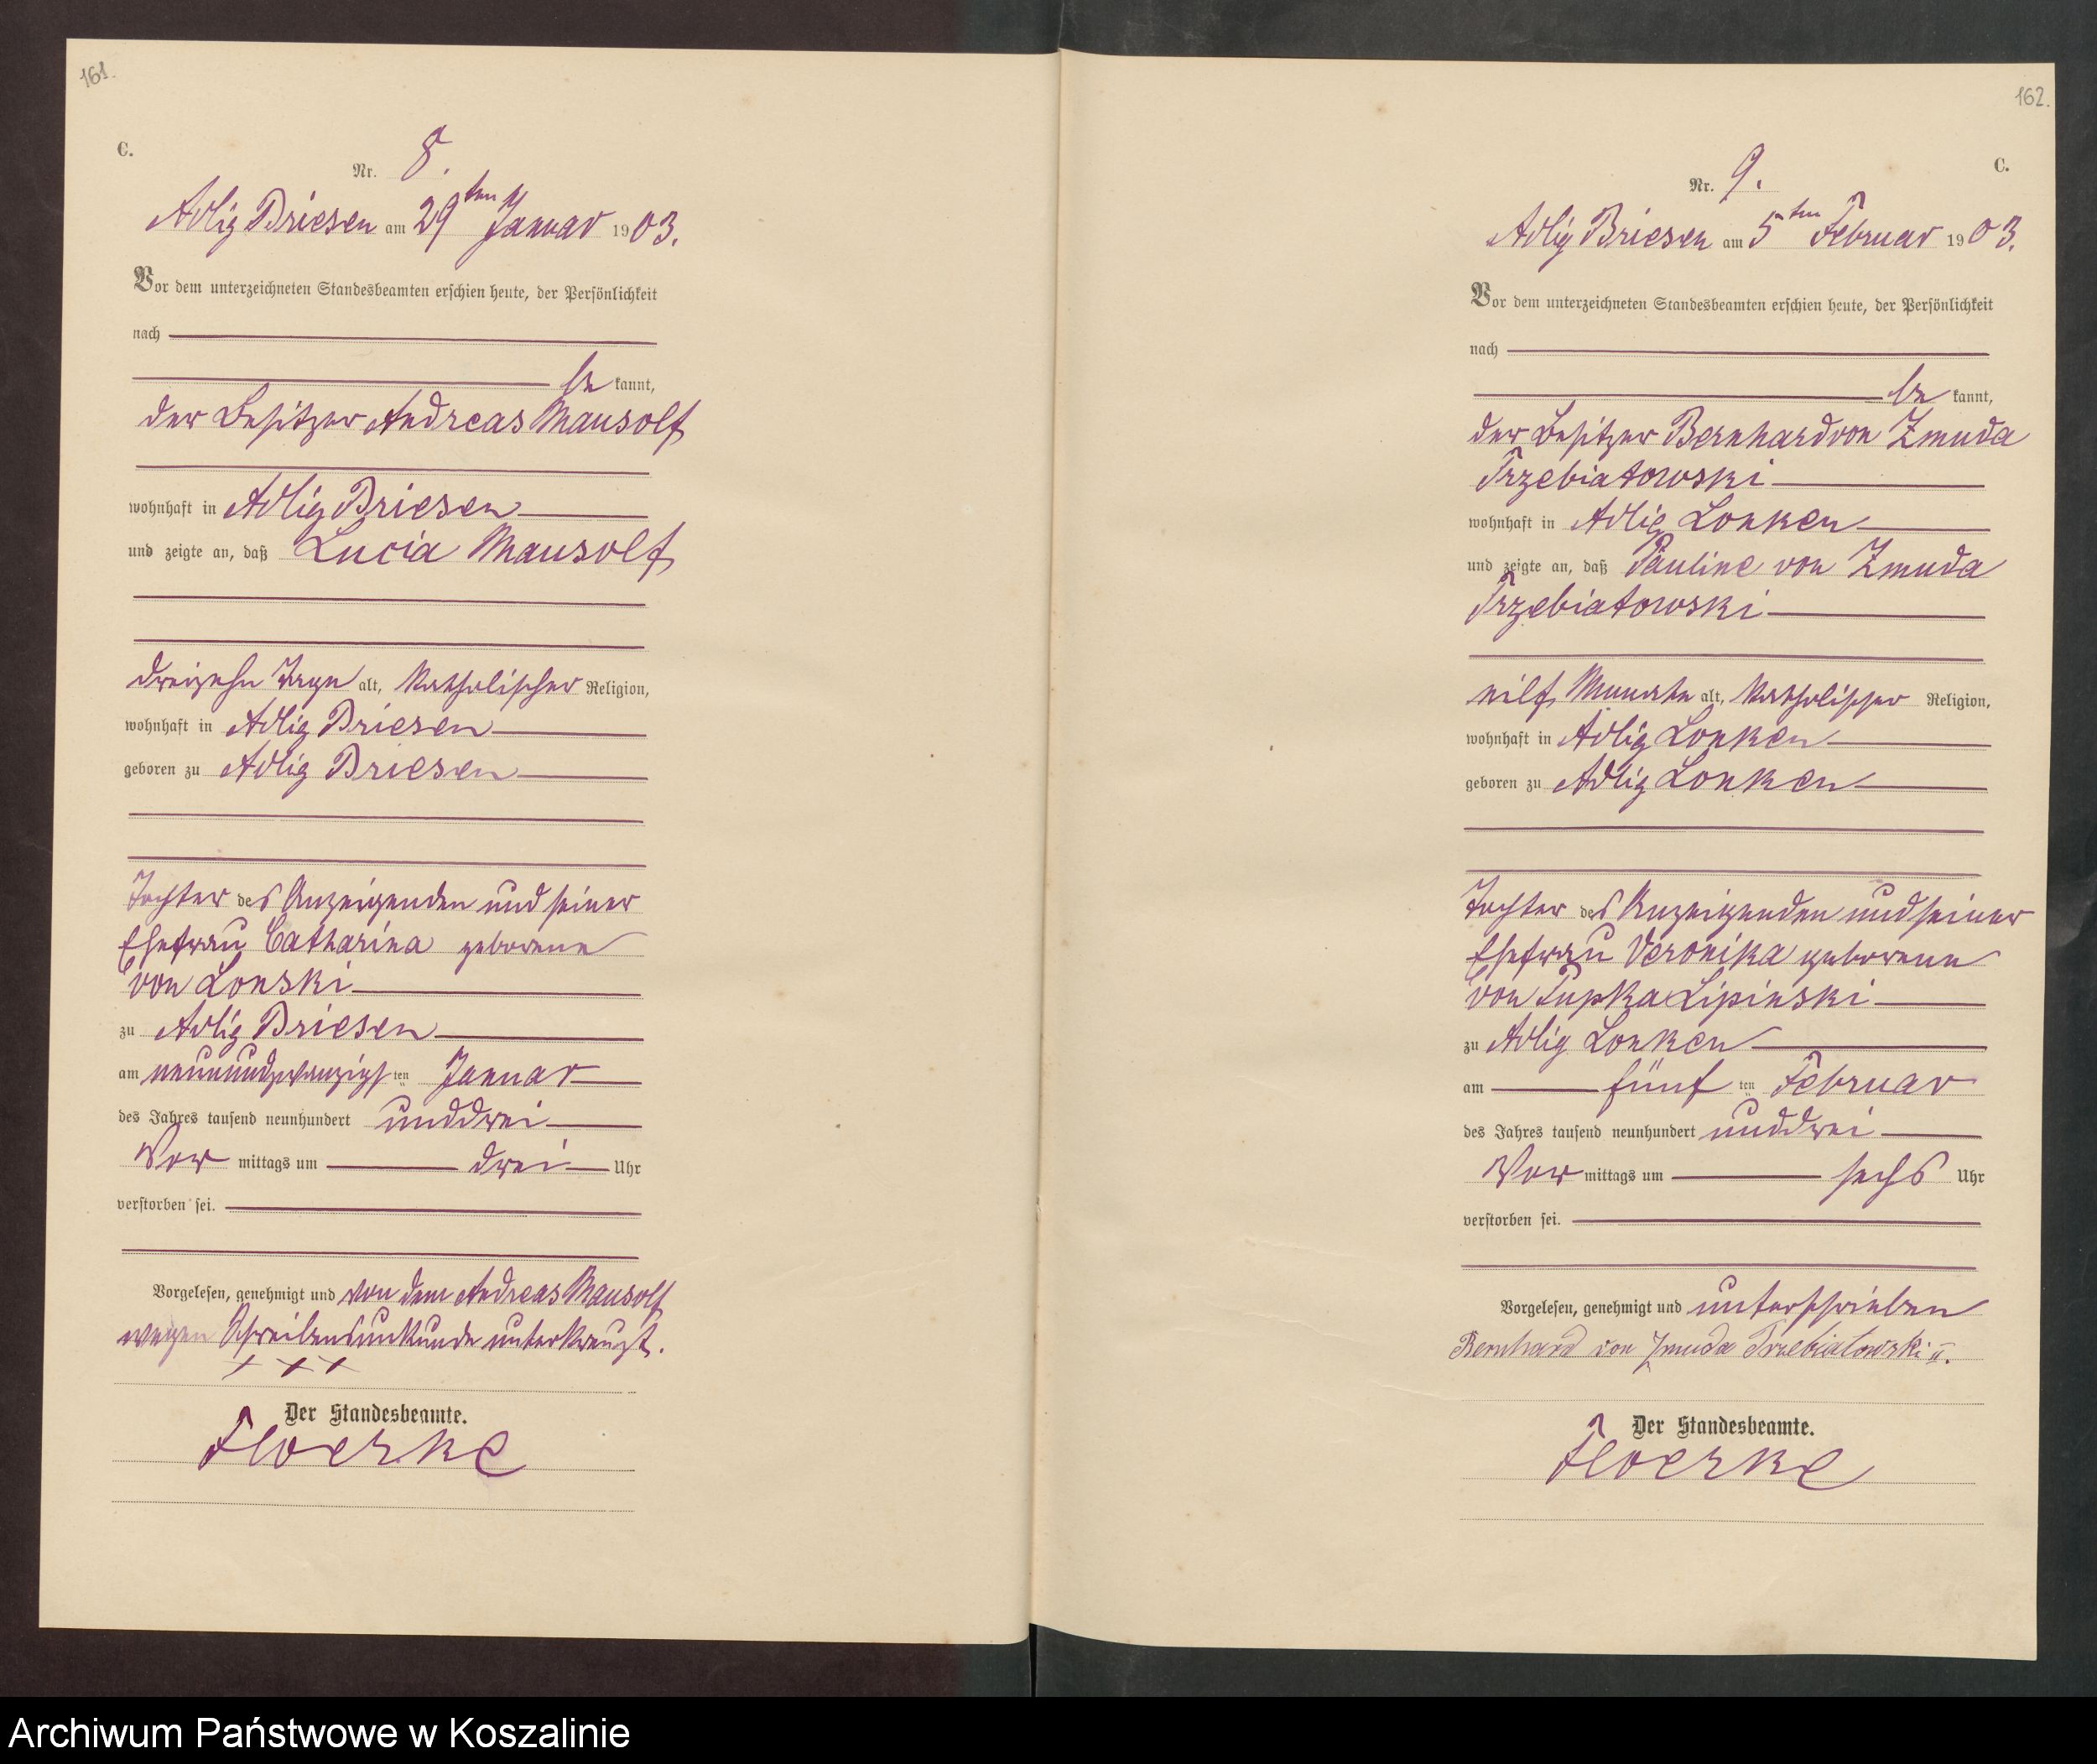 161.
C.
Nr. 8.
Adlig Briesen am 29ten Januar 1903.
Vor dem unterzeichneten Standesbeamten erschien heute, der Persönlichkeit
nach
be kannt,
der Besitzer Andreas Mausolf
wohnhaft in Adlig Briesen
und zeigte an, daß Lucia Mausolf
dreizehn Tage alt, katholischer Religion,
wohnhaft in Adlig Briesen
geboren zu Adlig Briesen
Tochter des Anzeigenden und seiner
Ehefrau Catharina geborene
von Lonski
zu Adlig Briesen
am neunundzwanzigsten Januar
des Jahres tausend neunhundert unddrei
Vor mittags um drei Uhr
verstorben sei.
Vorgelesen, genehmigt und von dem Andreas Mausolf
wegen Schreibensunkunde unterkreuzt.
+ + +
Der Standesbeamte.
Floerke
162.
C.
Nr. 9.
Adlig Briesen am 5ten Februar 1903.
Vor dem unterzeichneten Standesbeamten erschien heute, der Persönlichkeit
nach
be kannt,
der Besitzer Bernhard von Zmuda
Trzebiatowski
wohnhaft in Adlig Lonken
und zeigte an, daß Pauline von Zmuda
Trzebiatowski
eilf Monate alt, katholischer Religion,
wohnhaft in Adlig Lonken
geboren zu Adlig Lonken
Tochter des Anzeigenden und seiner
Ehefrau Veronika geborene
von Pupka Lipinski
zu Adlig Lonken
am fünf ten Februar
des Jahres tausend neunhundert unddrei
Vor mittags um sechs Uhr
verstorben sei.
Vorgelesen, genehmigt und unterschrieben
Bernhard von Zmuda Trzebiatowski II.
Der Standesbeamte.
Floerke
Archiwum Państwowe w Koszalinie